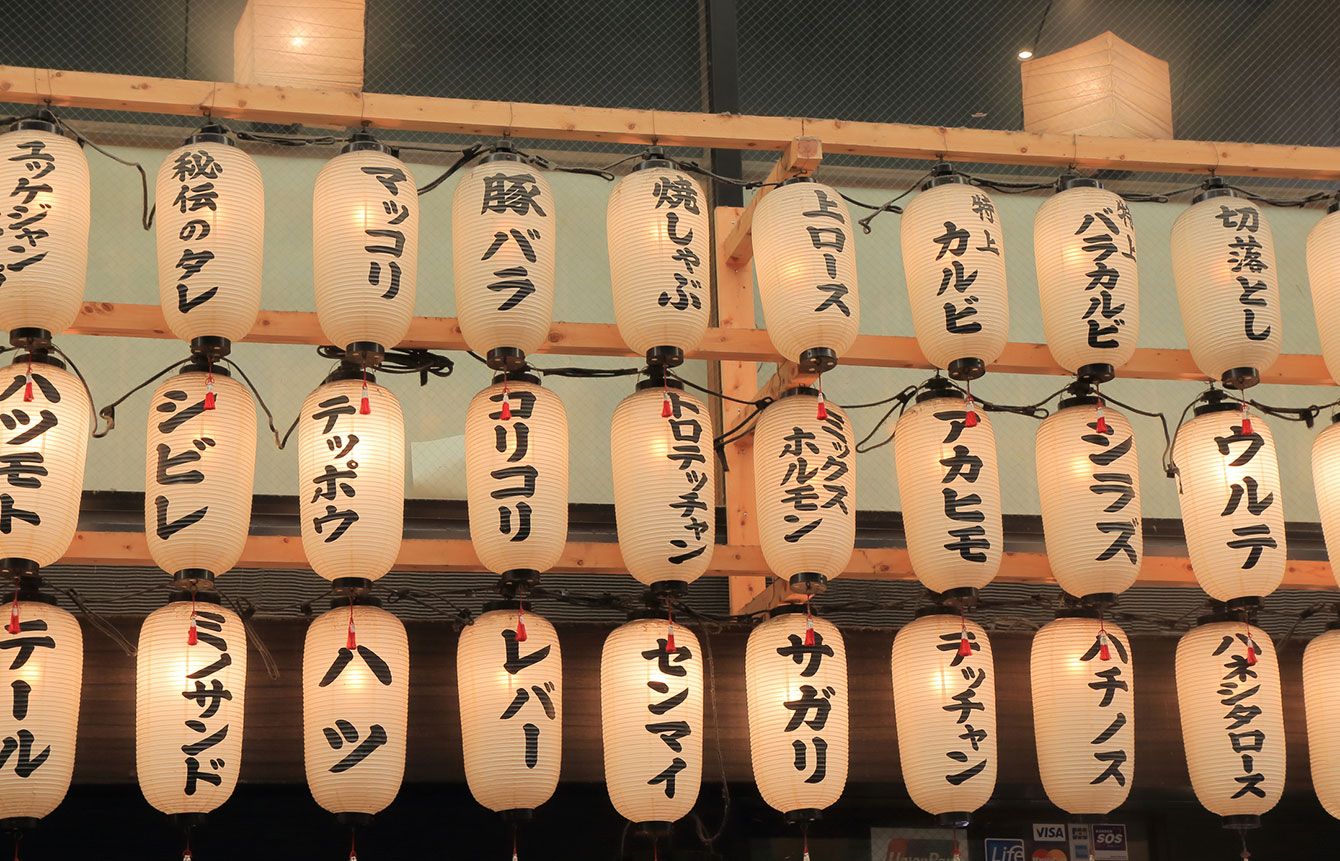 ユッケジャン
秘伝のタレ
マッコリ
豚バラ
焼しゃぶ
上ロース
特上
カルビ
特上
バラカルビ
切落とし
ハツモト
シビレ
テッポウ
コリコリ
トロテッチャン
ミックス
ホルモン
アカヒモ
シンラズ
ウルテ
テール
ミノサンド
ハツ
レバー
センマイ
サガリ
テッチャン
ハチノス
ハネシタロース
UnionPay
Life
VISA
JCB
SOS